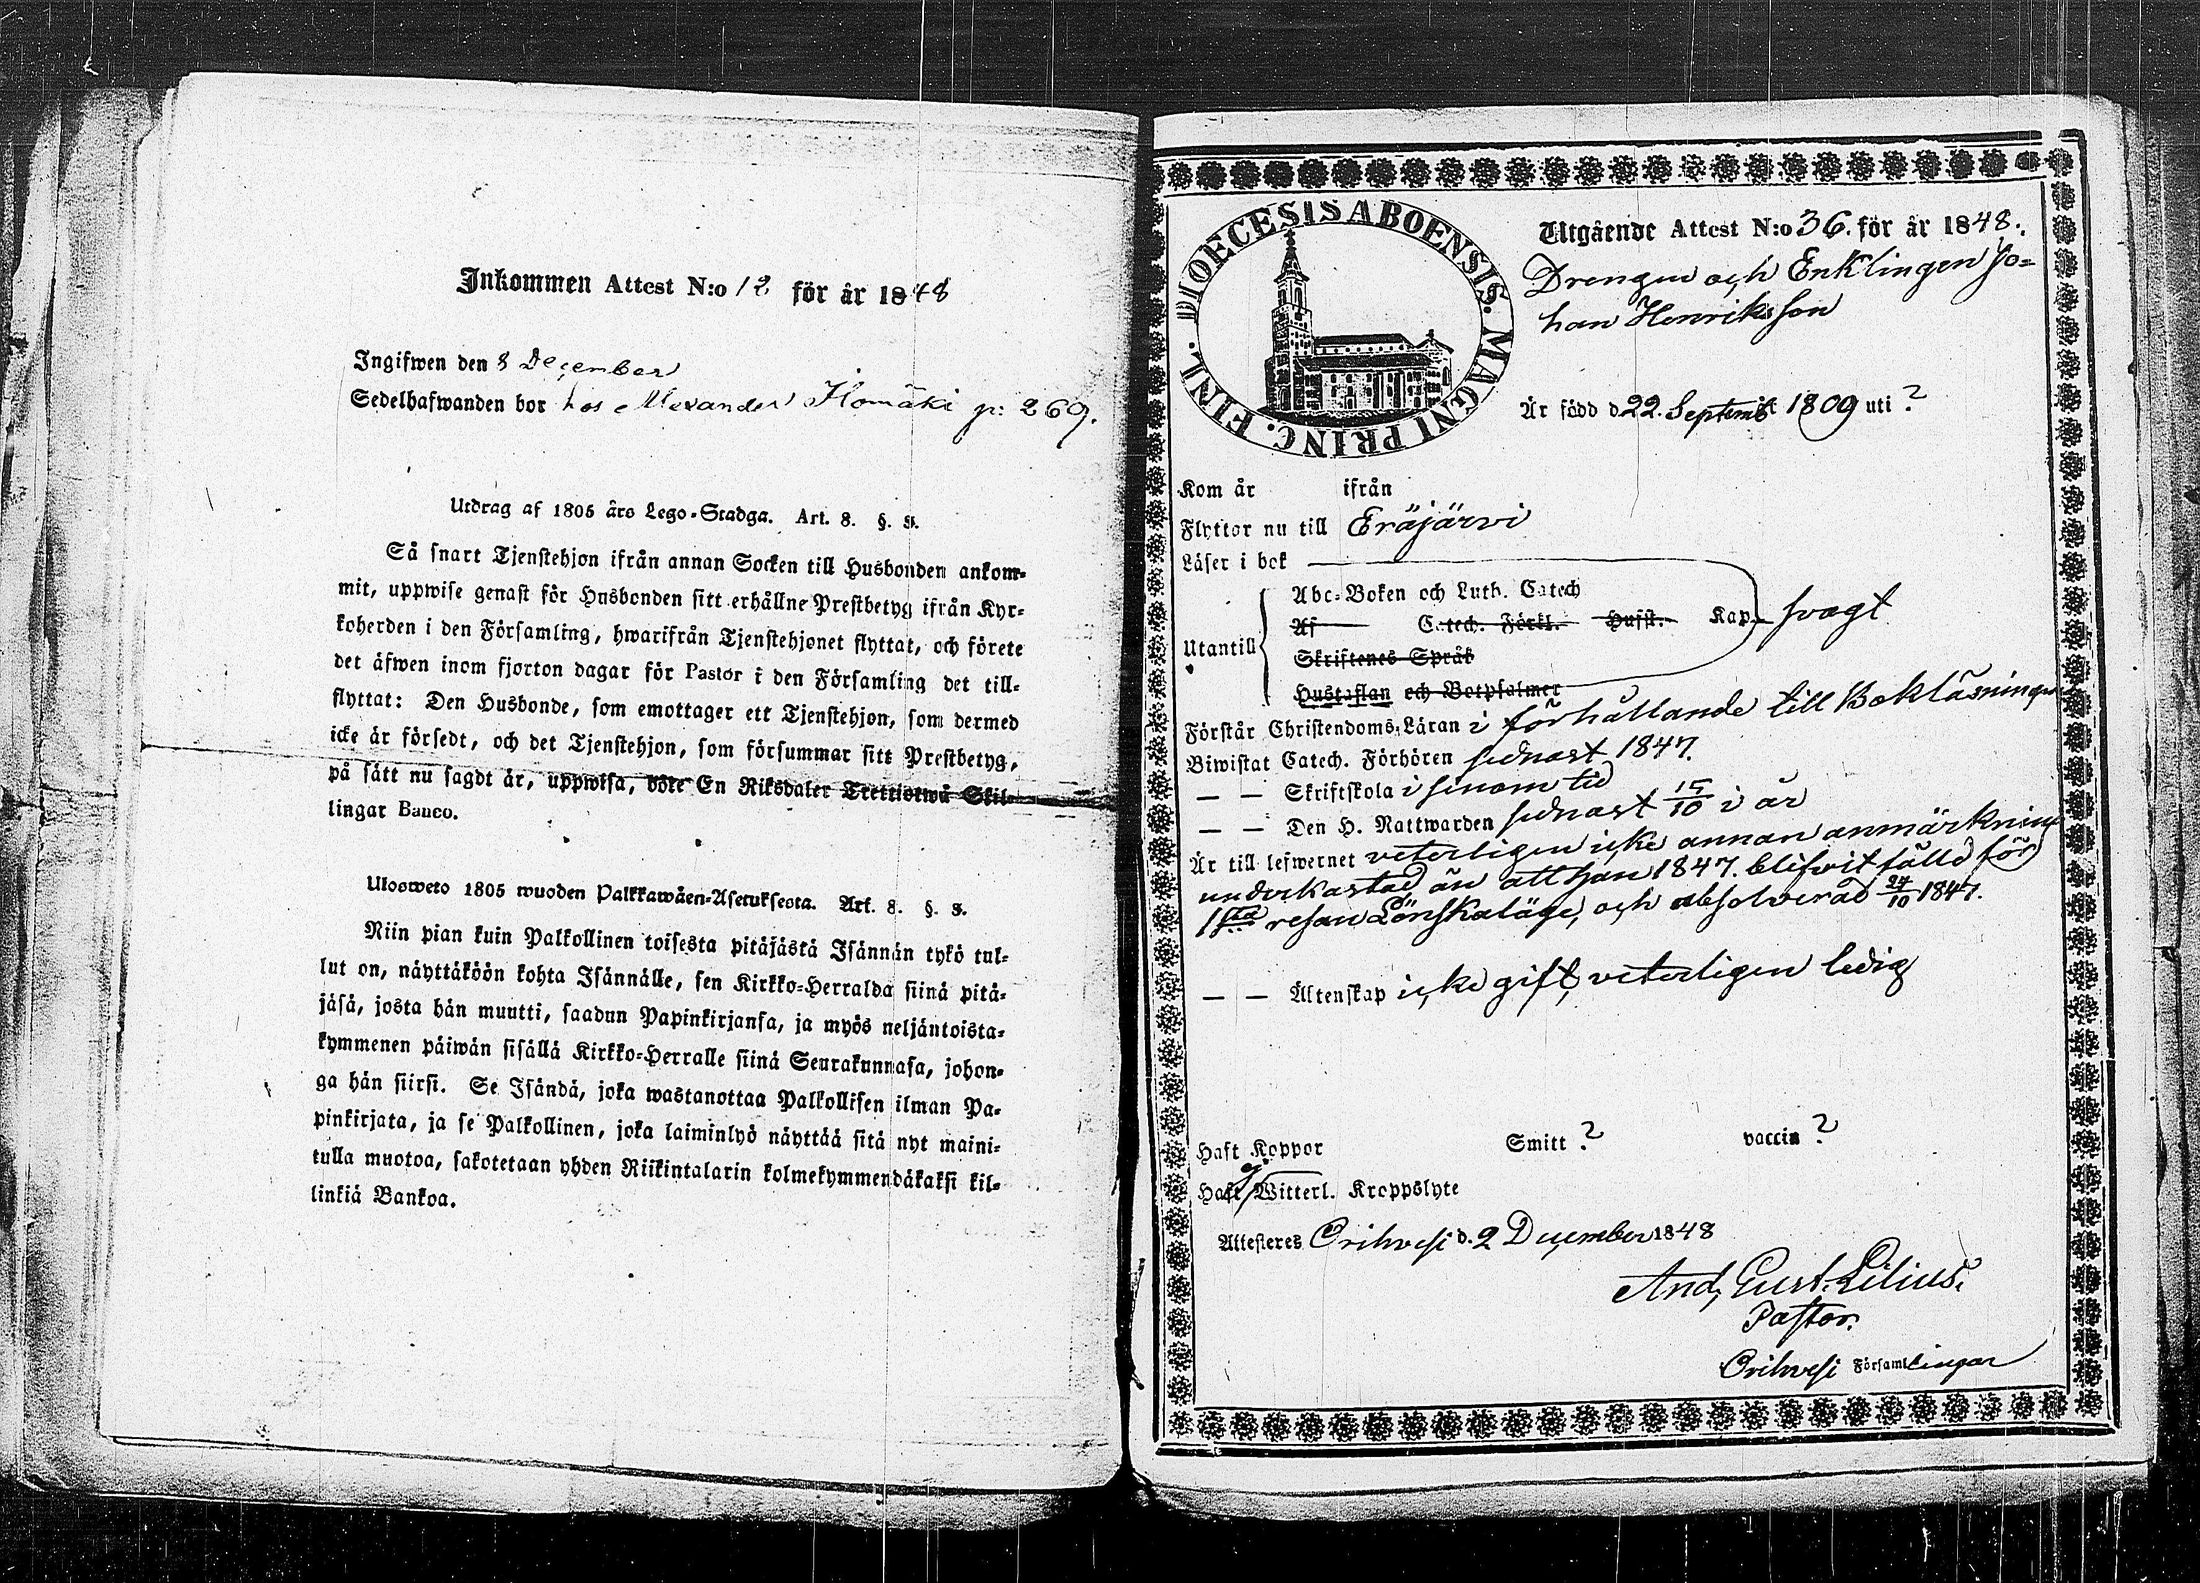 Inkommen Attest N:o 12 för år 1848
Ingifwen den 8 December
Sedelhafwanden bor hos Alexander Ilomäki p: 269.
Utdrag af 1805 års Lego-Stadga. Art. 8. §. 3.
Så snart Tjenstehjon ifrån annan Socken till Husbonden ankom-
mit, uppwise genast för Husbonden sitt erhållne Prestbetyg ifrån Kyr-
koherden i den Församling, hwarifrån Tjenstehjonet flyttat, och förete
det äfwen inom fjorton dagar för Pastor i den Församling det till-
flyttat: Den Husbonde, som emottager ett Tjenstehjon, som dermed
icke är försedt, och det Tjenstehjon, som försummar sitt Prestbetyg,
på sätt nu sagdt är, uppwisa, böte En Riksdaler Trettiotwå Skil-
lingar Banco.
Ulosweto 1805 wuoden Palkkawäen-Asetuksesta. Art. 8. §. 3.
Niin pian kuin Palkollinen toisesta pitäjästä Isännän tykö tul-
lut on, näyttäköön kohta Isännälle, sen Kirkko-Herralda siinä pitä-
jäsä, josta hän muutti, saadun Papinkirjansa, ja myös neljäntoista-
kymmenen päiwän sisällä Kirkko-Herralle siinä Seurakunnasa, johon-
ga hän siirsi. Se Isändä, joka wastanottaa Palkollisen ilman Pa-
pinkirjata, ja se Palkollinen, joka laiminlyö näyttää sitä nyt maini-
tulla muotoa, sakotetaan yhden Riikintalarin kolmekymmendäkaksi kil-
linkiä Bankoa.
DIOECESIS ABOENSIS. MAGNI PRINC. FINL.
Utgående Attest N:o 36. för år 1848.
Drengen och Enklingen Jo-
han Henriksson
Är född d. 22. Septemb 1809 uti ?
Kom år ifrån
Flyttar nu till Eräjärvi
Läser i bok
Abc-Boken och Luth. Catech
Utantill Af Catech. Förkl. Husst. Kap. svagt
Skriftenes Språk
Hustaflan och Botpsalmer
Förstår Christendoms-Läran i förhållande till Bokläsningen
Biwistat Catech. Förhören sednast 1847.
— — Skriftskola i sinom tid
— — Den H. Nattwarden sednast 15/10 i år
Är till lefwernet veterligen icke annan anmärkning
underkastad än att han 1847. blifvit fälld för
1sta resan Lönskaläge, och absolverad 24/10 1847.
— — Äktenskap icke gift, veterligen ledig
Haft Koppor Smitt ? vaccin ?
Haft Witterl. Kroppslyte
Attesteres Orihvesi d. 2 December 1848
And. Gust. Lilius.
Pastor.
Orihvesi Församlingar